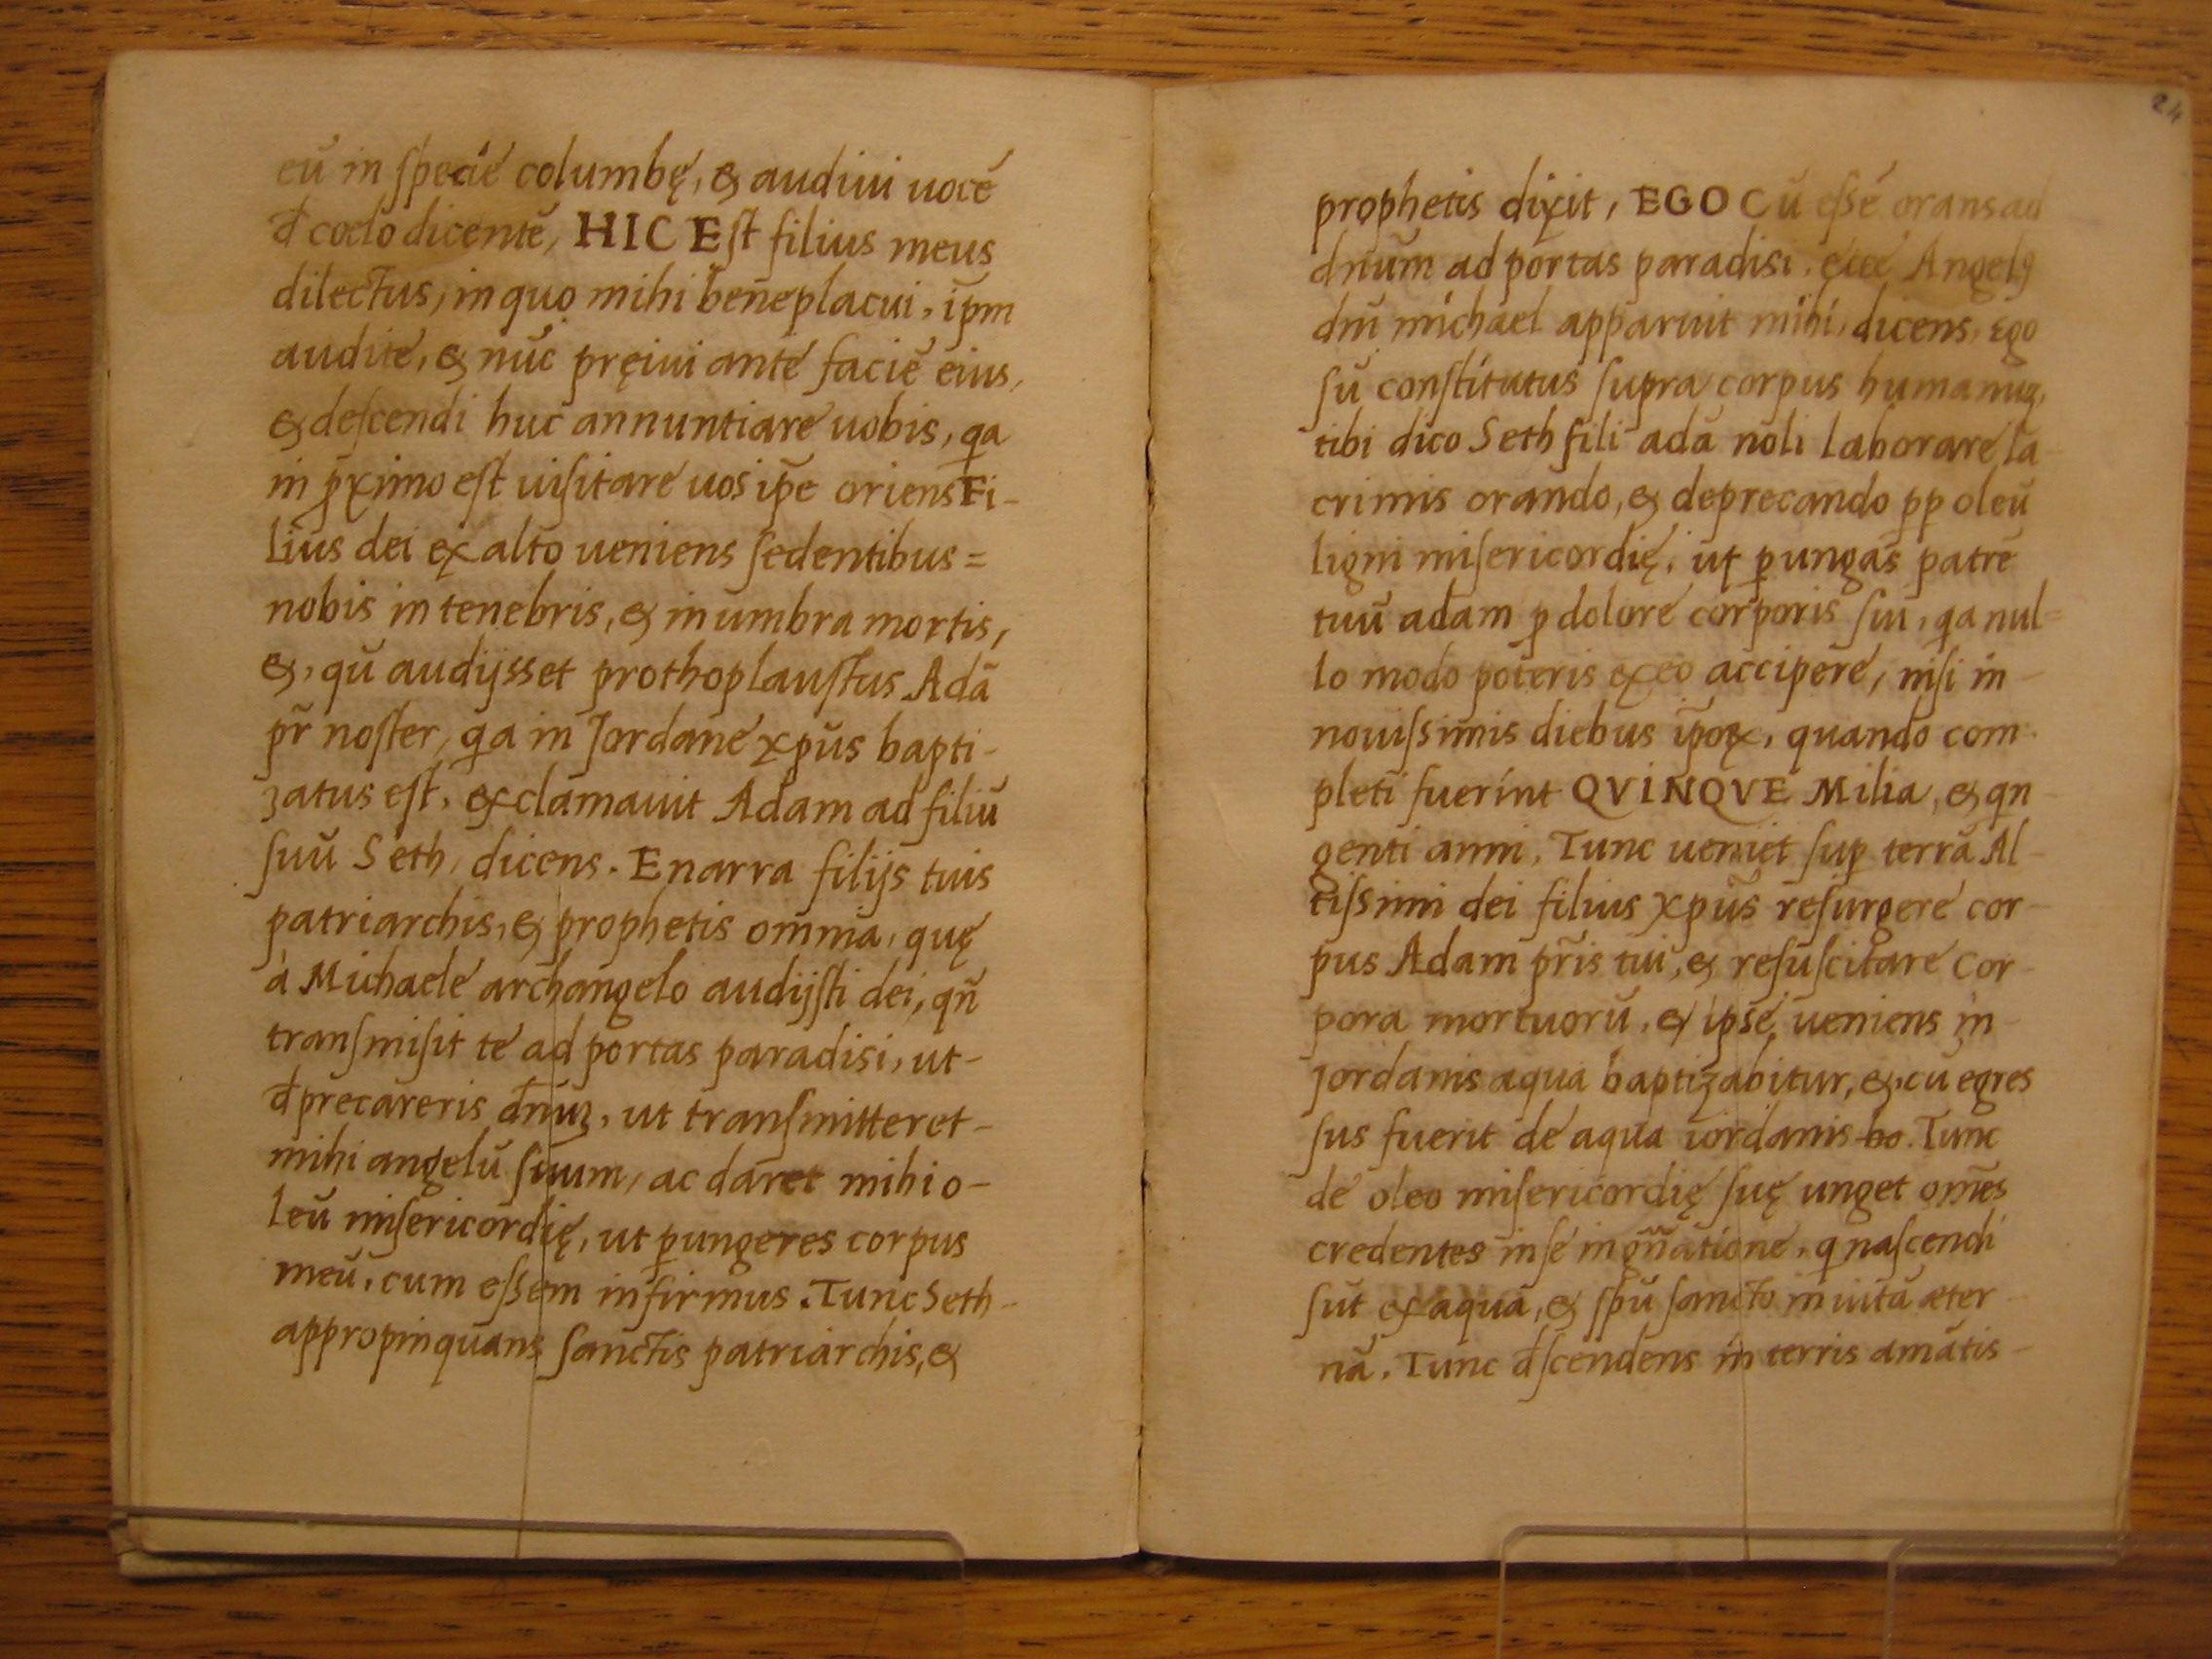 eū in ſpecie columbę, & audiui uocē
đ coelo dicentē, HIC Eſt filius meus
dilectus, in quo mihi beneplacui, ip̄m
audite, & nūc pręiui ante faciē eius,
& deſcendi huc annuntiare uobis, qa
in ꝓximo eſt uiſitare uos ip̄e oriens Fi-
lius dei ex alto ueniens ſedentibus =
nobis in tenebris, & in umbra mortis,
&, qū audijsset prothoplauſtus Adā
pr̄ noſter, qa in Jordane xp̄us bapti-
zatus eſt, exclamauit Adam ad filiū
ſuū Seth, dicens. Enarra filijs tuis
patriarchis, & prophetis omnia, quę
à Michaele archangelo audijſti dei, qn̄
tranſmiſit te ad portas paradisi, ut-
đprecareris dn̄uꝫ, ut tranſmitteret-
mihi angelū ſuum, ac daret mihi o-
leū miſericordię, ut ꝑungeres corpus
meū, cum eſſem infirmus. Tunc Seth-
appropinquans ſanctis patriarchis, &
24
prophetis dixit, EGO Cū eſſē orans ad
dn̄um ad portas paradisi, ecce Angelꝰ
dn̄i michael apparuit mihi, dicens, Ego
ſū conſtitutus ſupra corpus humanuꝫ,
tibi dico Seth fili adā noli laborare la
crimis orando, & deprecando pp̱ oleū
ligni miſericordię, ut ꝑungas patrē
tuū adam ꝓ dolore corporis ſui, qa nul=
lo modo poteris ex eo accipere, niſi in-
nouiſsimis diebus ip̄oꝝ, quando com-
pleti fuerint QVINQVE Milia, & qn-
genti anni, Tunc ueniet ſuꝑ terrā Al-
tiſsimi dei filius xp̄us reſurgere cor-
pus Adam pr̄is tui, & reſuſcitare Cor-
pora mortuorū, & ipse ueniens in-
Jordanis aqua baptizabitur, &, cū egres
sus fuerit de aqua iordanis ho. Tunc
de oleo miſericordię ſuę unget om̄es
credentes in ſe in gn̄atione, q naſcendi
ſūt ex aqua, & ſpū ſancto in uitā æter-
nā. Tunc đſcendens in terris amātis-